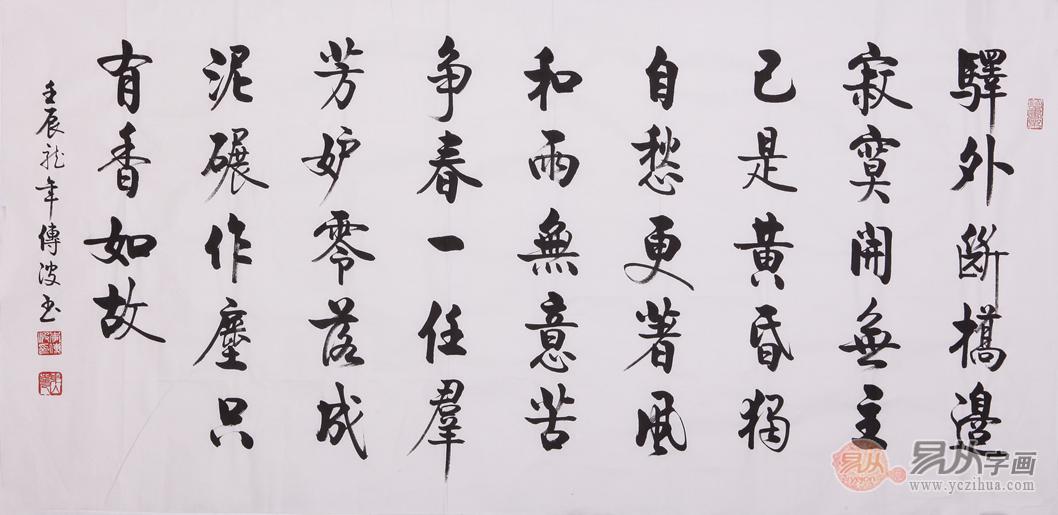 驛外斷橋邊
寂寞開無主
已是黃昏獨
自愁更著風
和雨無意苦
爭春一任羣
芳妒零落成
泥碾作塵只
有香如故
壬辰龍年傳波书
易从
易从字画
www.yczihua.com